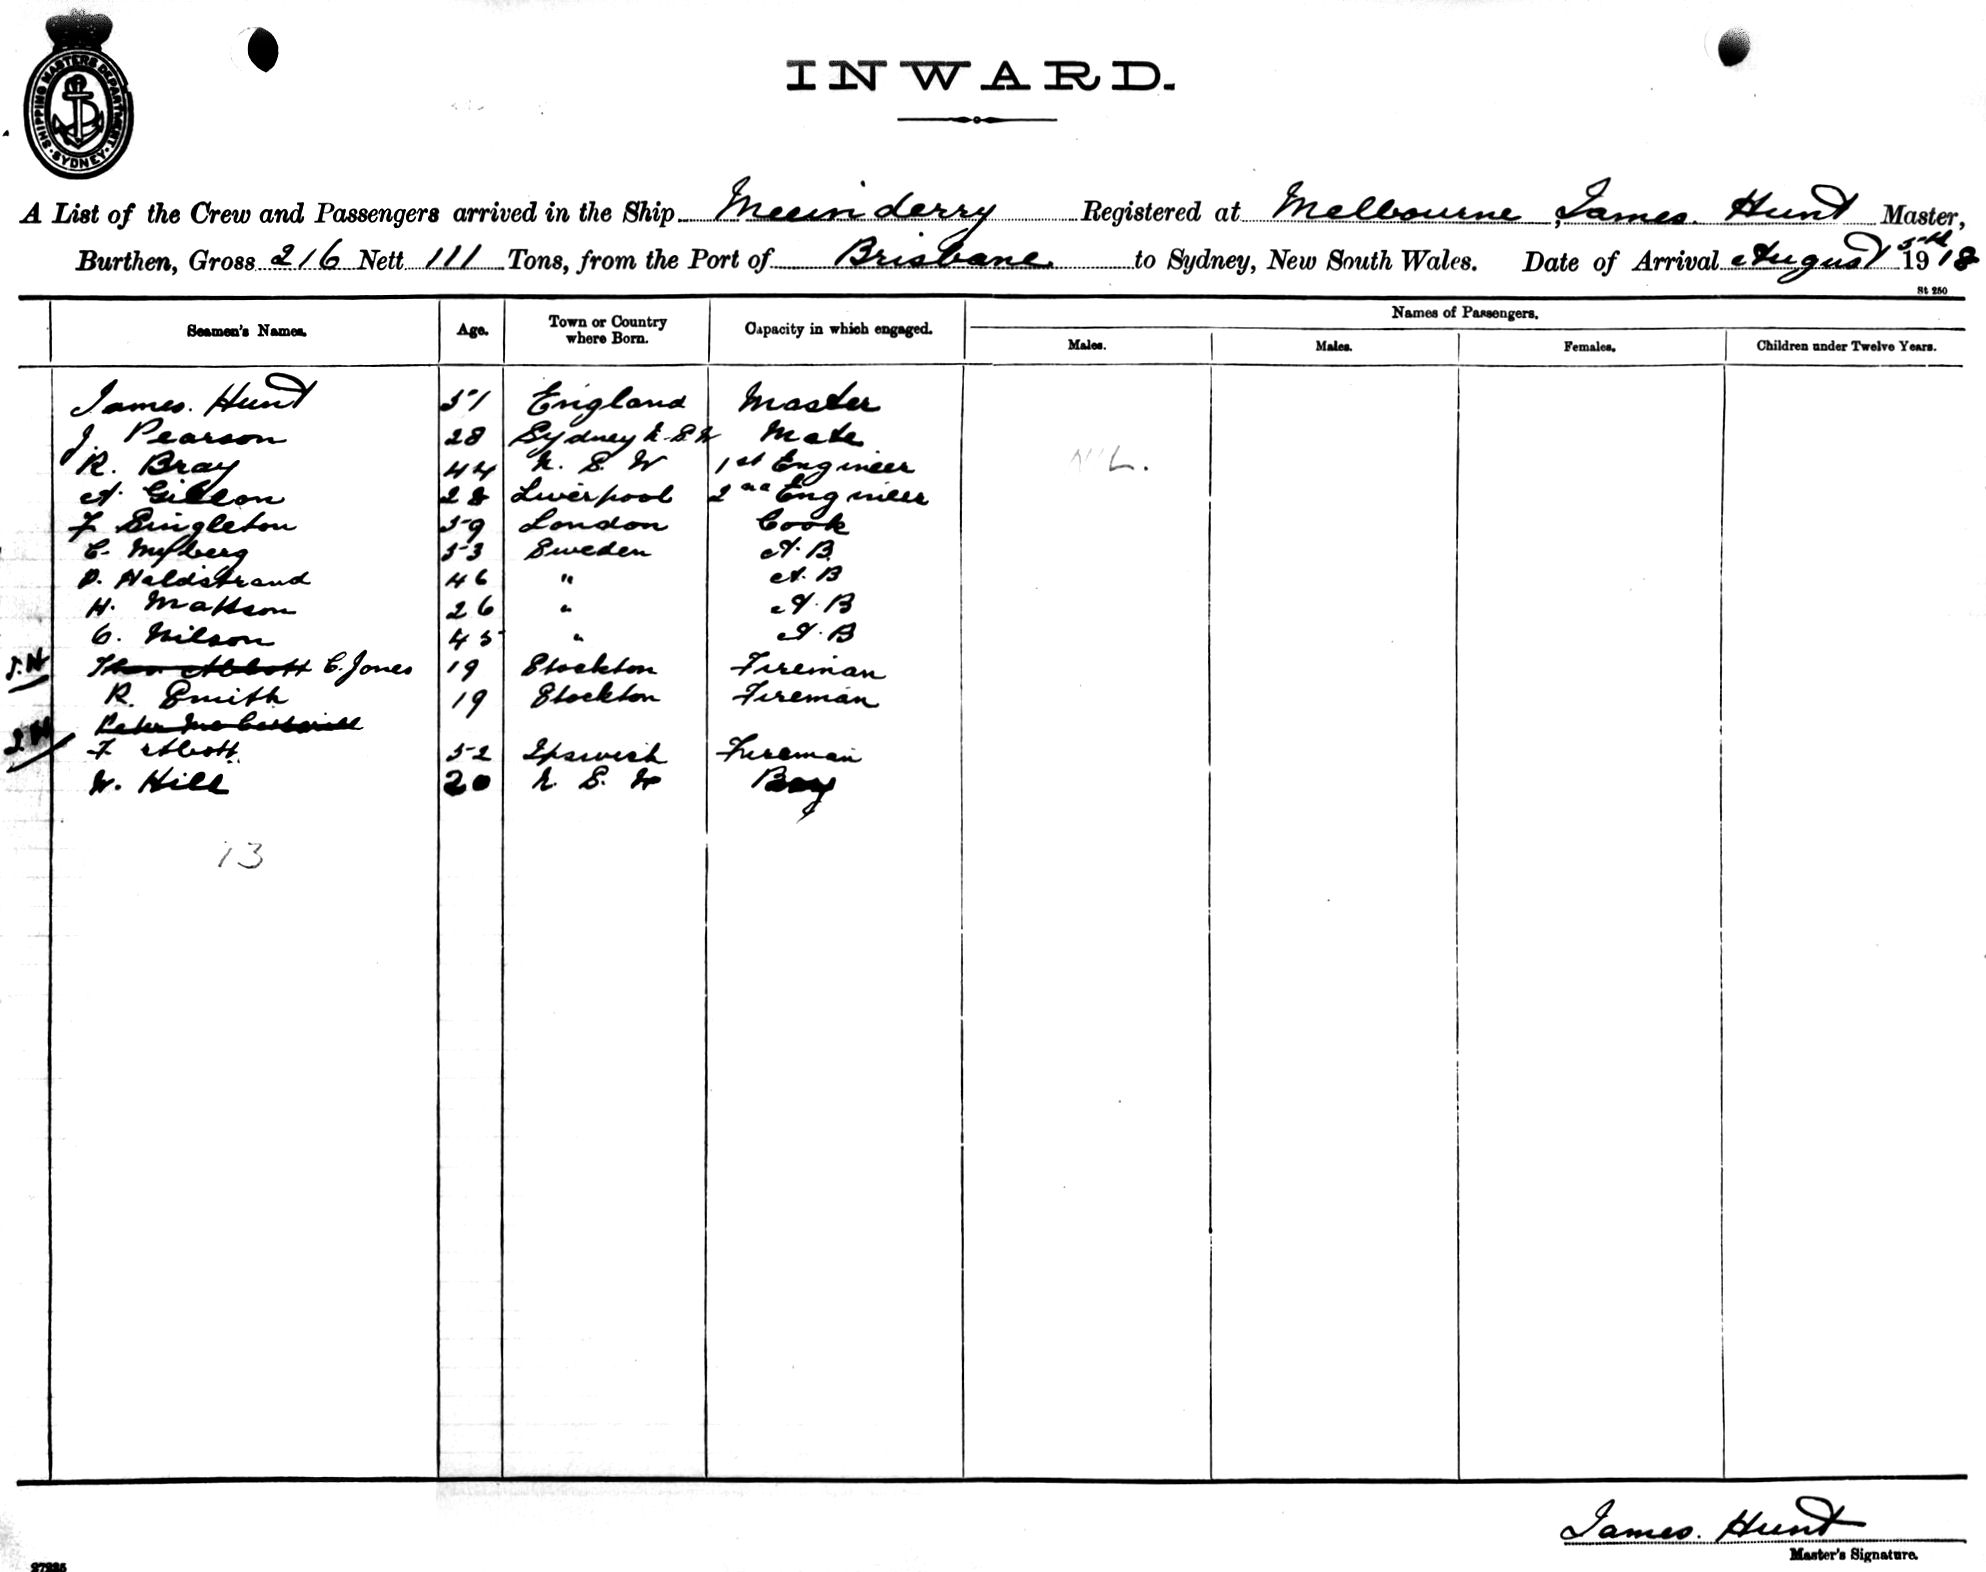 SHIPPING MASTERS DEPARTMENT
SYDNEY
INWARD.
A List of the Crew and Passengers arrived in the Ship Meeinderry Registered at Melbourne, James. Hunt Master,
Burthen, Gross 216 Nett 111 Tons, from the Port of Brisbane. to Sydney, New South Wales. Date of Arrival August 5th 1918
St 250
Seamen's Names. Age. Town or Country where Born. Capacity in which engaged. Names of Passengers.
Males. Males. Females. Children under Twelve Years.
James. Hunt 51 England Master
J. Pearson 28 Sydney N.S.W Mate
R. Bray 44 N. S. W 1st Engineer NIL.
A. Gibson 28 Liverpool 2nd Engineer
F Singleton 59 London Cook
C. 53 Sweden A.B.
D. Haldstrand 46 " A.B
H. Mattson 26 " A.B
C. Nilson 45 " A.B
J.H Thos Abbott C. Jones 19 Stockton Fireman
R. Smith 19 Stockton Fireman
Peter
J.H F Abbott. 52 Ipswich Fireman
W. Hill 20 N. S. W Boy
13
James. Hunt
Master's Signature.
27225